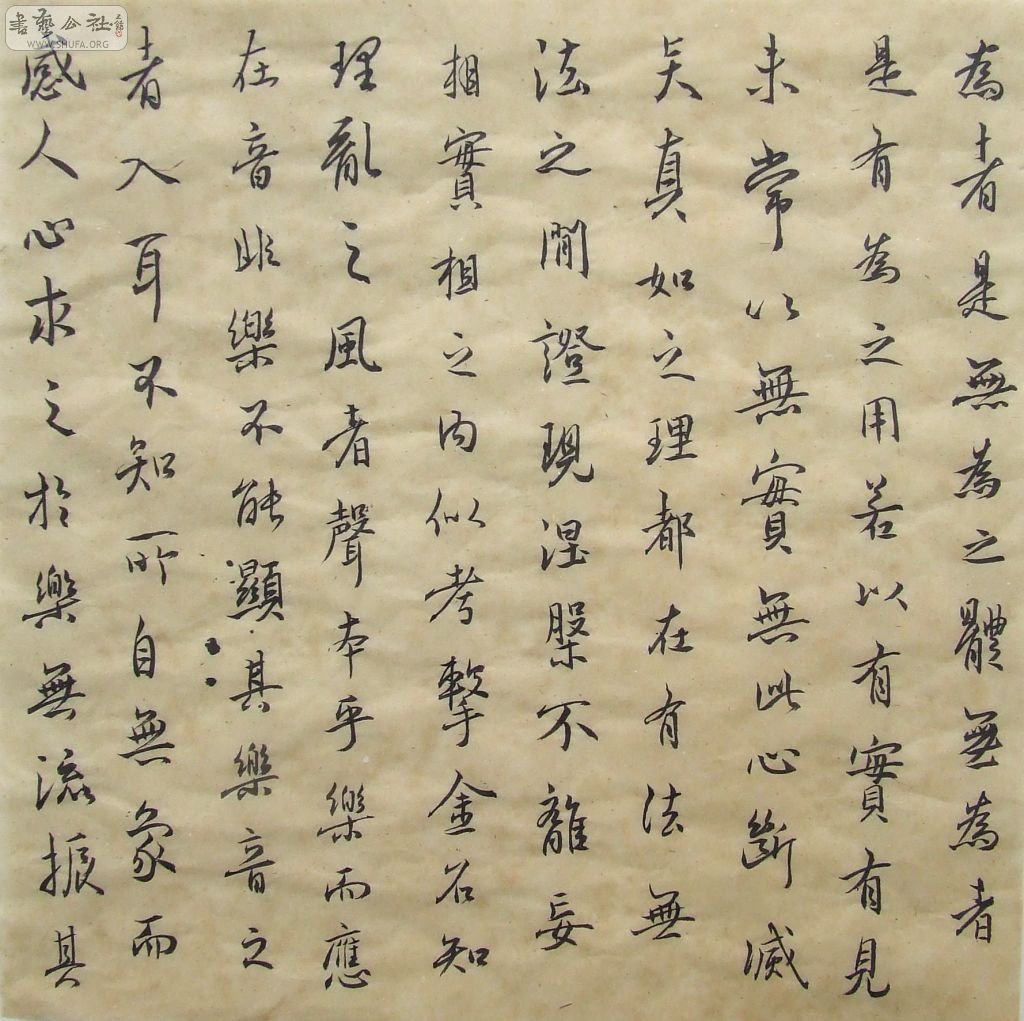 為者是無為之體無為者
是有為之用若以有實有見
未常以無實無此心斷滅
矣真如之理都在有法無
法之間證現涅槃不離妄
相實相之內似考擊金石知
理亂之風者聲本乎樂而應
在音非樂不能顯其樂音之
者入耳不知所自無象而
感人心求之於樂無流振其
書藝公社
WWW.SHUFA.ORG